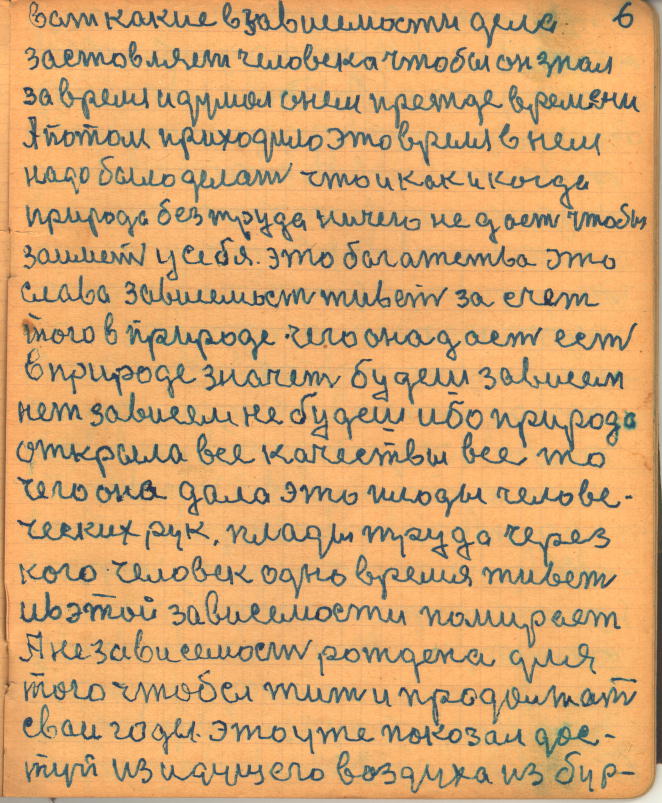 6
вот какие взависемости дела
застовляет человека чтобы он знал
за время и думол онем прежде времени
А потом приходило это время в нем
надо было делат что и как и когда
природа без труда ничего не дает чтобы
заимет у себя. это богатства это
слава зависемост живет за счет
того в природе. чего она дает ест
в природе значет будеш зависем
нет зависем не будеш ибо природа
открыла все качествы все то
чего она дала это плоды челове-
ческих рук, плады труда через
кого человек одно время живет
и вэтой зависемости помирает
А независемост рождена для
того чтобы жит и продолжат
сваи годы. это уже покозал дос-
туп из идущего воздуха из бур-